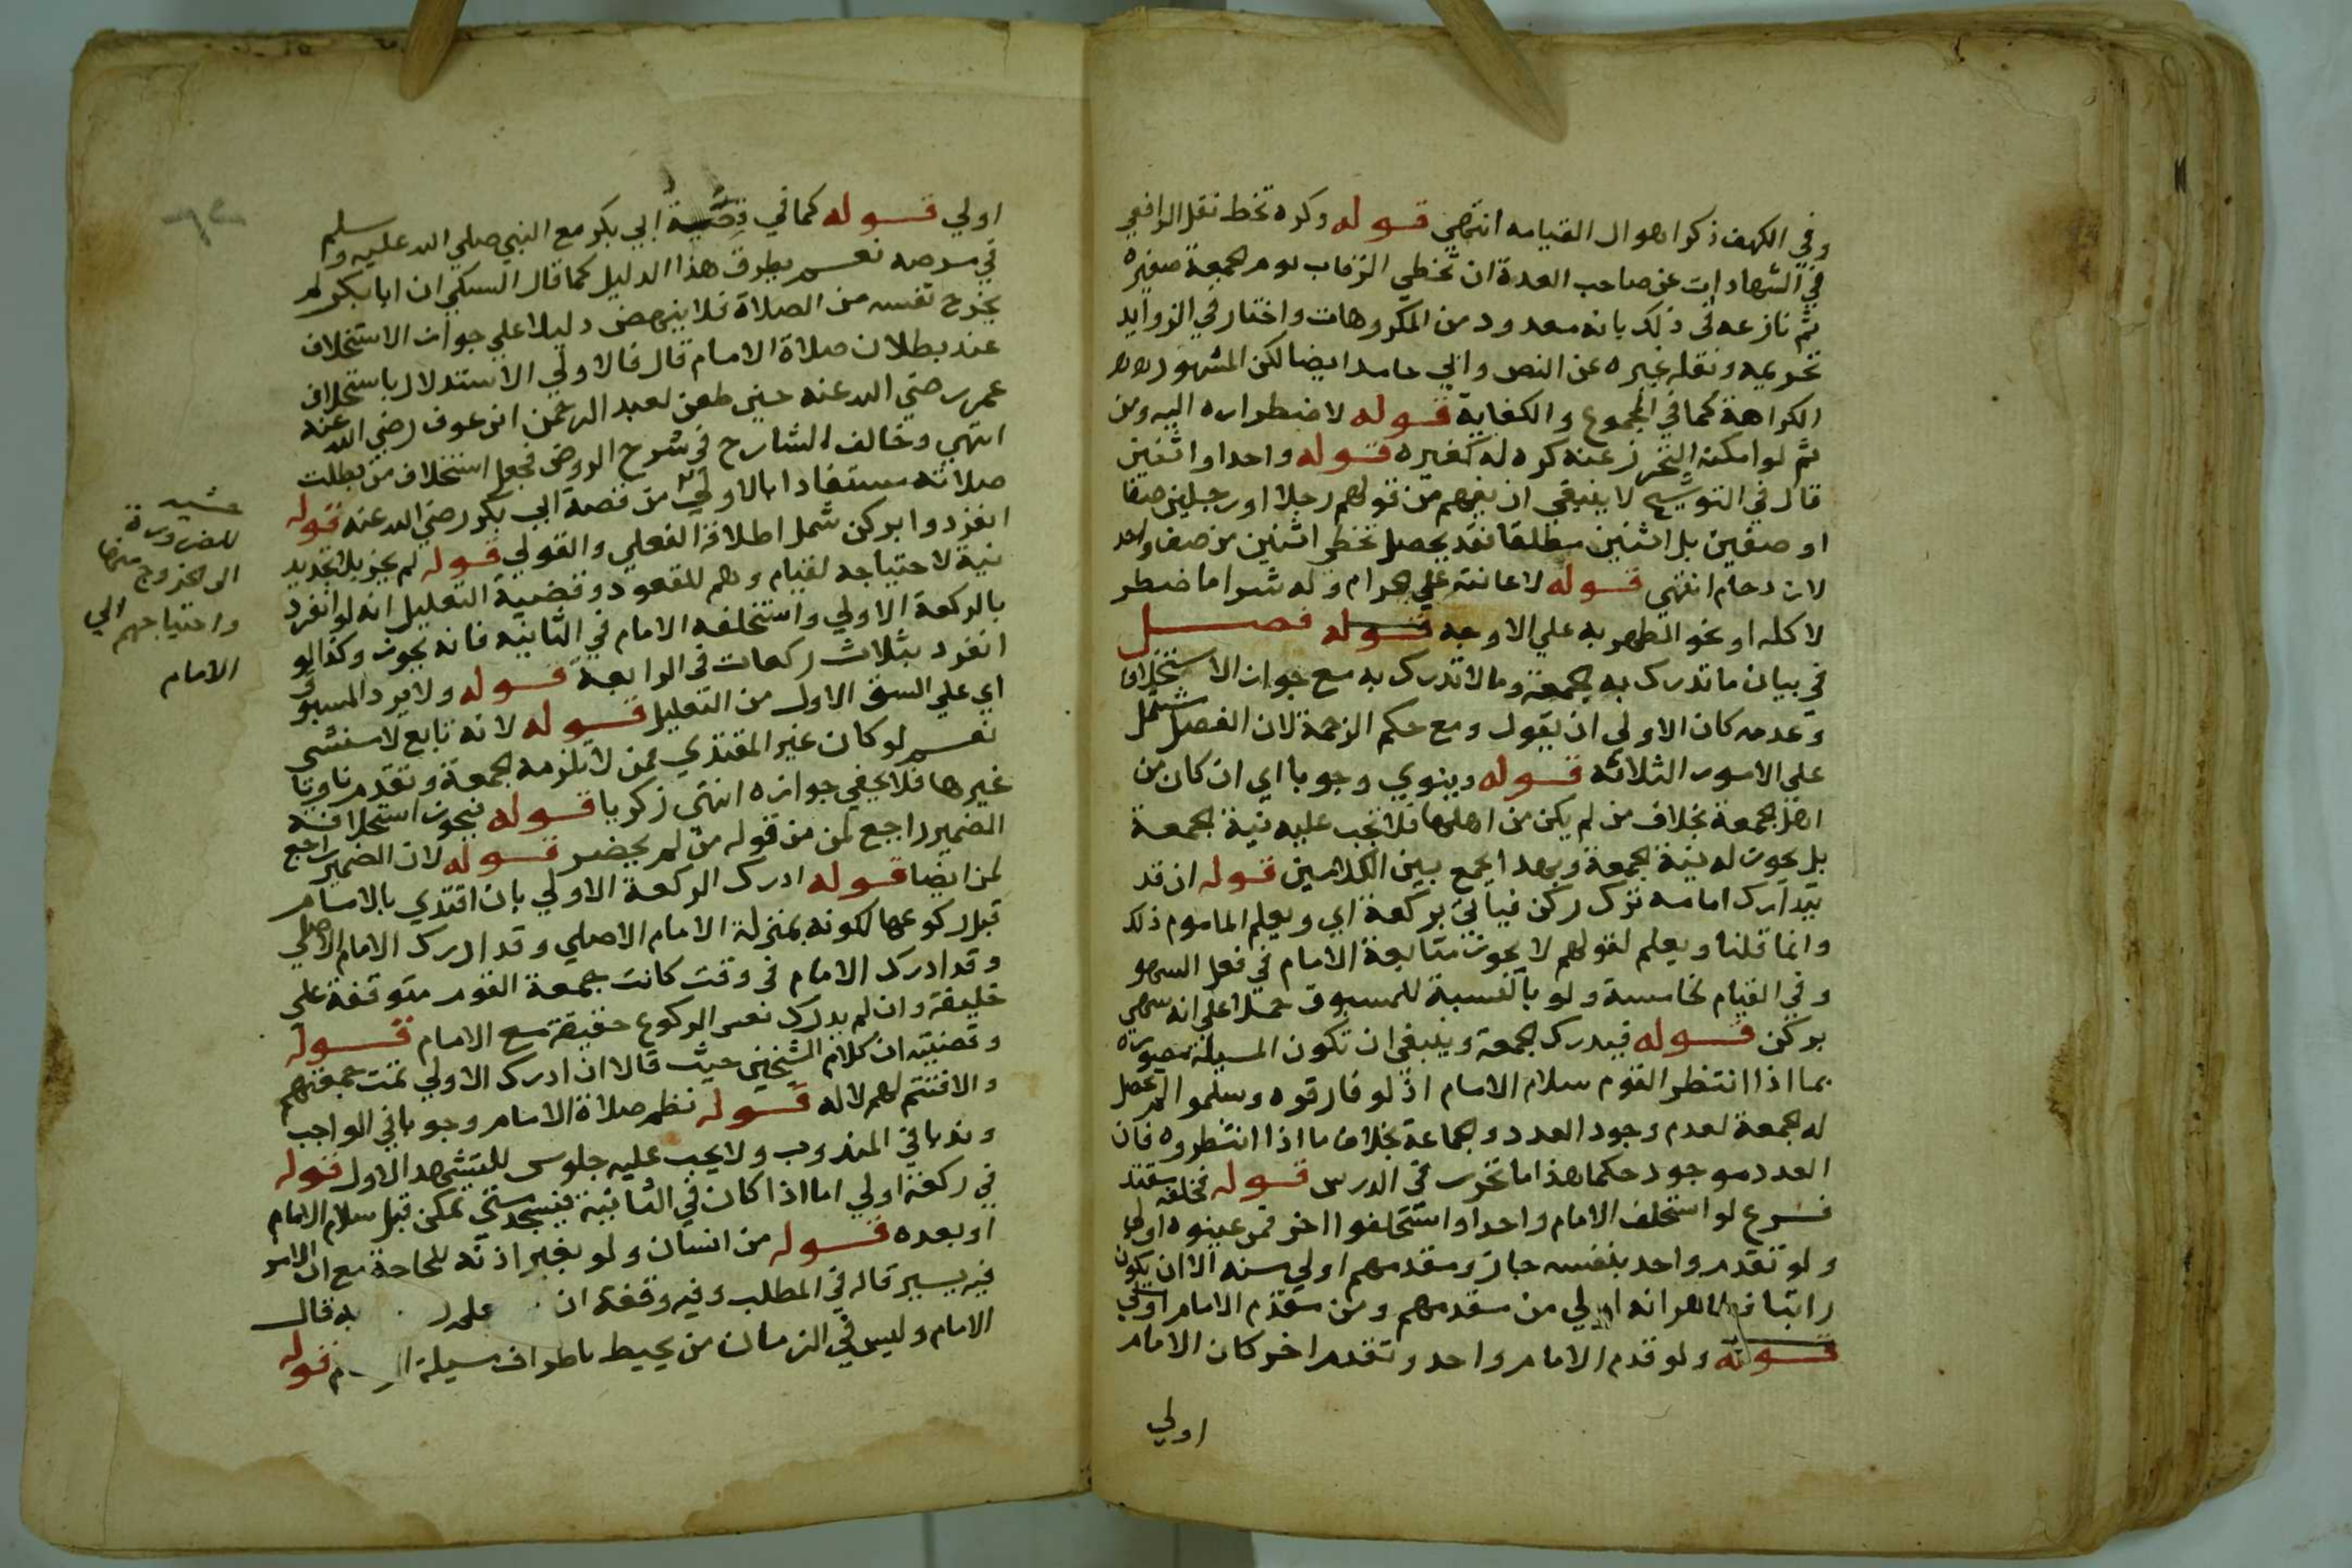 وفي الكهف ذكر اهوال القيامه انتهى قوله وكره تخط نقل الرافعي
في الشهادات عن صاحب العدة ان تخطي الرقاب يوم الجمعة صغيره
ثم نازعه في ذلك بانه معدود من المكروهات واختار في الزوايد
تحريمه ونقله غيره عن النص وابي حامد ايضا لكن المشهور
الكراهة كما في المجموع والكفاية قوله لاضطراره اليه ومن
ثم لو امكنه التحرز عنه كره له كغيره قوله واحدا واثنين
قال في التوشيح لا ينبغي ان يفهم من قولهم رجلا او رجلين صفا
او صفين بل اثنين مطلقا فقد يحصل تخطى اثنين من صف واحد
لازدحام انتهي قوله لاعانته علي الحرام وله شرا ما ضطر
لاكله او نحو الطهر به علي الاوجه قوله فصل
في بيان ما تدرك به الجمعة وما لا تدرك به مع جواز الاستخلاف
وعدمه كان الاولى ان يقول ومع حكم الزحمة لان الفصل يشتمل
علي الامور الثلاثه قوله وينوي وجوبا اي ان كان من
اهل الجمعة بخلاف من لم يكن من اهلها فلا تجب عليه نية الجمعة
بل يجوز له نية الجمعة وبهذا يجمع بين الكلامين قوله ان قد
يتدارك امامه ترك ركن فياتي بركعة اي ويعلم الماموم ذلك
وانما قلنا ويعلم لقولهم لا يجوز متابعة الامام في فعل السهو
وفي القيام لخامسة ولو بالنسبة للمسبوق حملا على انه سهى
بركن قوله فيدرك الجمعة وينبغي ان تكون المسيلة مصورة
بما اذا انتظر القوم سلام الامام اذ لو فارقوه وسلموا لم تحصل
له الجمعة لعدم وجود العدد والجماعة بخلاف ما اذا انتظروه فان
العدد موجود حكما هذا ما تحرر في الدرس قوله فخلفه مقتد
فرع لو استخلف الامام واحدا واستخلفوا اخر فمن عينوه اولي
ولو تقدم واحد بنفسه جاز ومقدمهم اولي منه الا ان يكون
راتبا فظاهر انه اولي من مقدمهم ومن مقدم الامام اولي
قوله ولو قدم الامام واحد وتقدم اخر كان الامام
اولي
اولي قوله كما في قصة ابي بكر مع النبي صلي الله عليه وسلم
في مرضه نعم يطرق هذا الدليل كما قال السبكي ان ابا بكر لم
يخرج نفسه من الصلاة فلا ينهض دليلا علي جواز الاستخلاف
عند بطلان صلاة الامام قال فالاولي الاستدلال باستخلاف
عمر رضي الله عنه حين طعن لعبد الرحمن ابن عوف رضي الله عنه
انتهي وخالف الشارح في شرح الروض فجعل استخلاف من بطلت
صلاته مستفادا بالاولي من قصة ابي بكر رضي الله عنه قوله
انفردوا بركن شمل اطلاقه الفعلي والقولي قوله لم يجز بلا تجديد
نية لاحتياجه لقيام وهم للقعود وقضية التعليل انه لو انفرد
بالركعة الاولي واستخلفه الامام في الثانيه فانه يجوز وكذا لو
انفرد بثلاث ركعات في الرابعة قوله ولا يرد المسبوق
اي علي الشق الاول من التعليل قوله لانه تابع لا منشي
نعم لو كان غير المقتدي ممن لا تلزمه الجمعة وتقدم ناويا
غيرها فلا يخفي جوازه انتهى زكريا قوله فيجوز استخلافه
الضمير راجع لمن من قوله من لم يحضر قوله لان الضمير راجع
لمن ايضا قوله ادرك الركعة الاولي بان اقتدي بالامام
قبل ركوعها لكونه بمنزلة الامام الاصلي وقد ادرك الامام الاصلي
وقد ادرك الامام في وقت كانت جمعة القوم متوقفة علي
خليفة وان لم يدرك نفس الركوع حقيقة مع الامام قوله
وقضيته ان كلام الشيخين حيث قالا ان ادرك الاولي تمت جمعتهم
والا فتتم لهم لا له قوله نظم صلاة الامام وجوبا في الواجب
وندبا في المندوب ولا يجب عليه جلوس للتشهد الاول قوله
في ركعة اولي اما اذا كان في الثانية فيسجد متى تمكن قبل سلام الامام
او بعده قوله من انسان ولو بغير اذنه للحاجة مع ان الامر
فيه يسير قاله في المطلب وفيه وقفة ان به قال
الامام وليس في الزمان من يحيط باطراف مسيلة قوله
للضرورة
الى الخروج منها
واحتياجهم الي
الامام